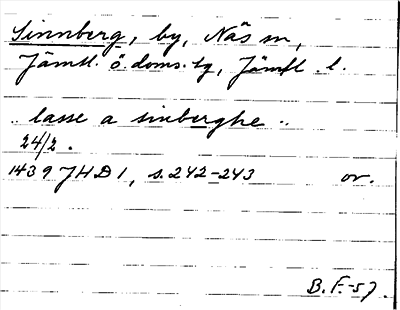 Sinnberg, by, Näs sn,
Jämtl. ö. doms. tg, Jämtl. l.
.. lasse a sinberghe ..
24/2.
1439 JHD 1, s. 242-243 or.
B. F. -57